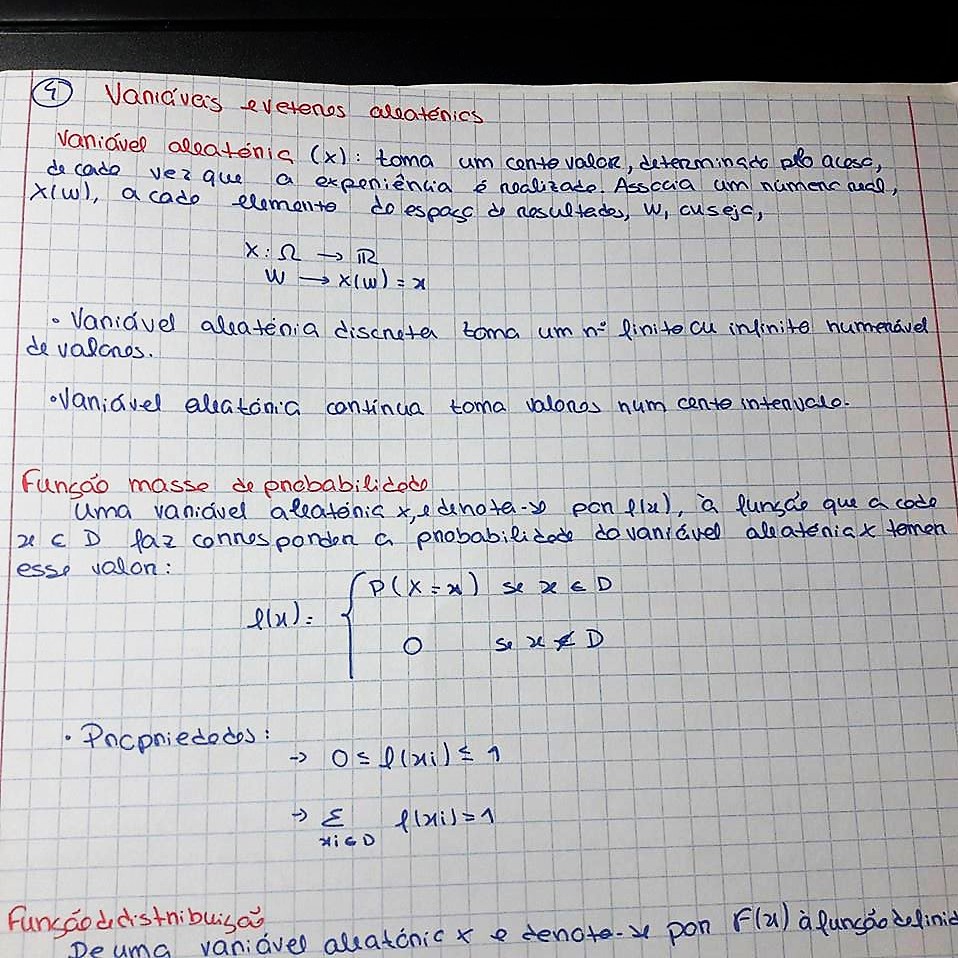 ④ Variáveis e vetores aleatórios
Variável aleatória (X): toma um certo valor, determinado pelo acaso,
de cada vez que a experiência é realizada. Associa um número real,
X(w), a cada elemento do espaço de resultados, w, ou seja,
X: Ω → ℝ
w → X(w) = x
• Variável aleatória discreta toma um nº finito ou infinito numerável
de valores.
• Variável aleatória contínua toma valores num certo intervalo.
Função massa de probabilidade
Uma variável aleatória X, e denota-se por f(x), à função que a cada
x ∈ D faz corresponder a probabilidade da variável aleatória X tomar
esse valor:
f(x) = { P(X = x) se x ∈ D
0 se x ∉ D
• Propriedades:
→ 0 ≤ f(xi) ≤ 1
→ Σ f(xi) = 1
xi ∈ D
Função de distribuição
De uma variável aleatória X e denota-se por F(x) à função definid